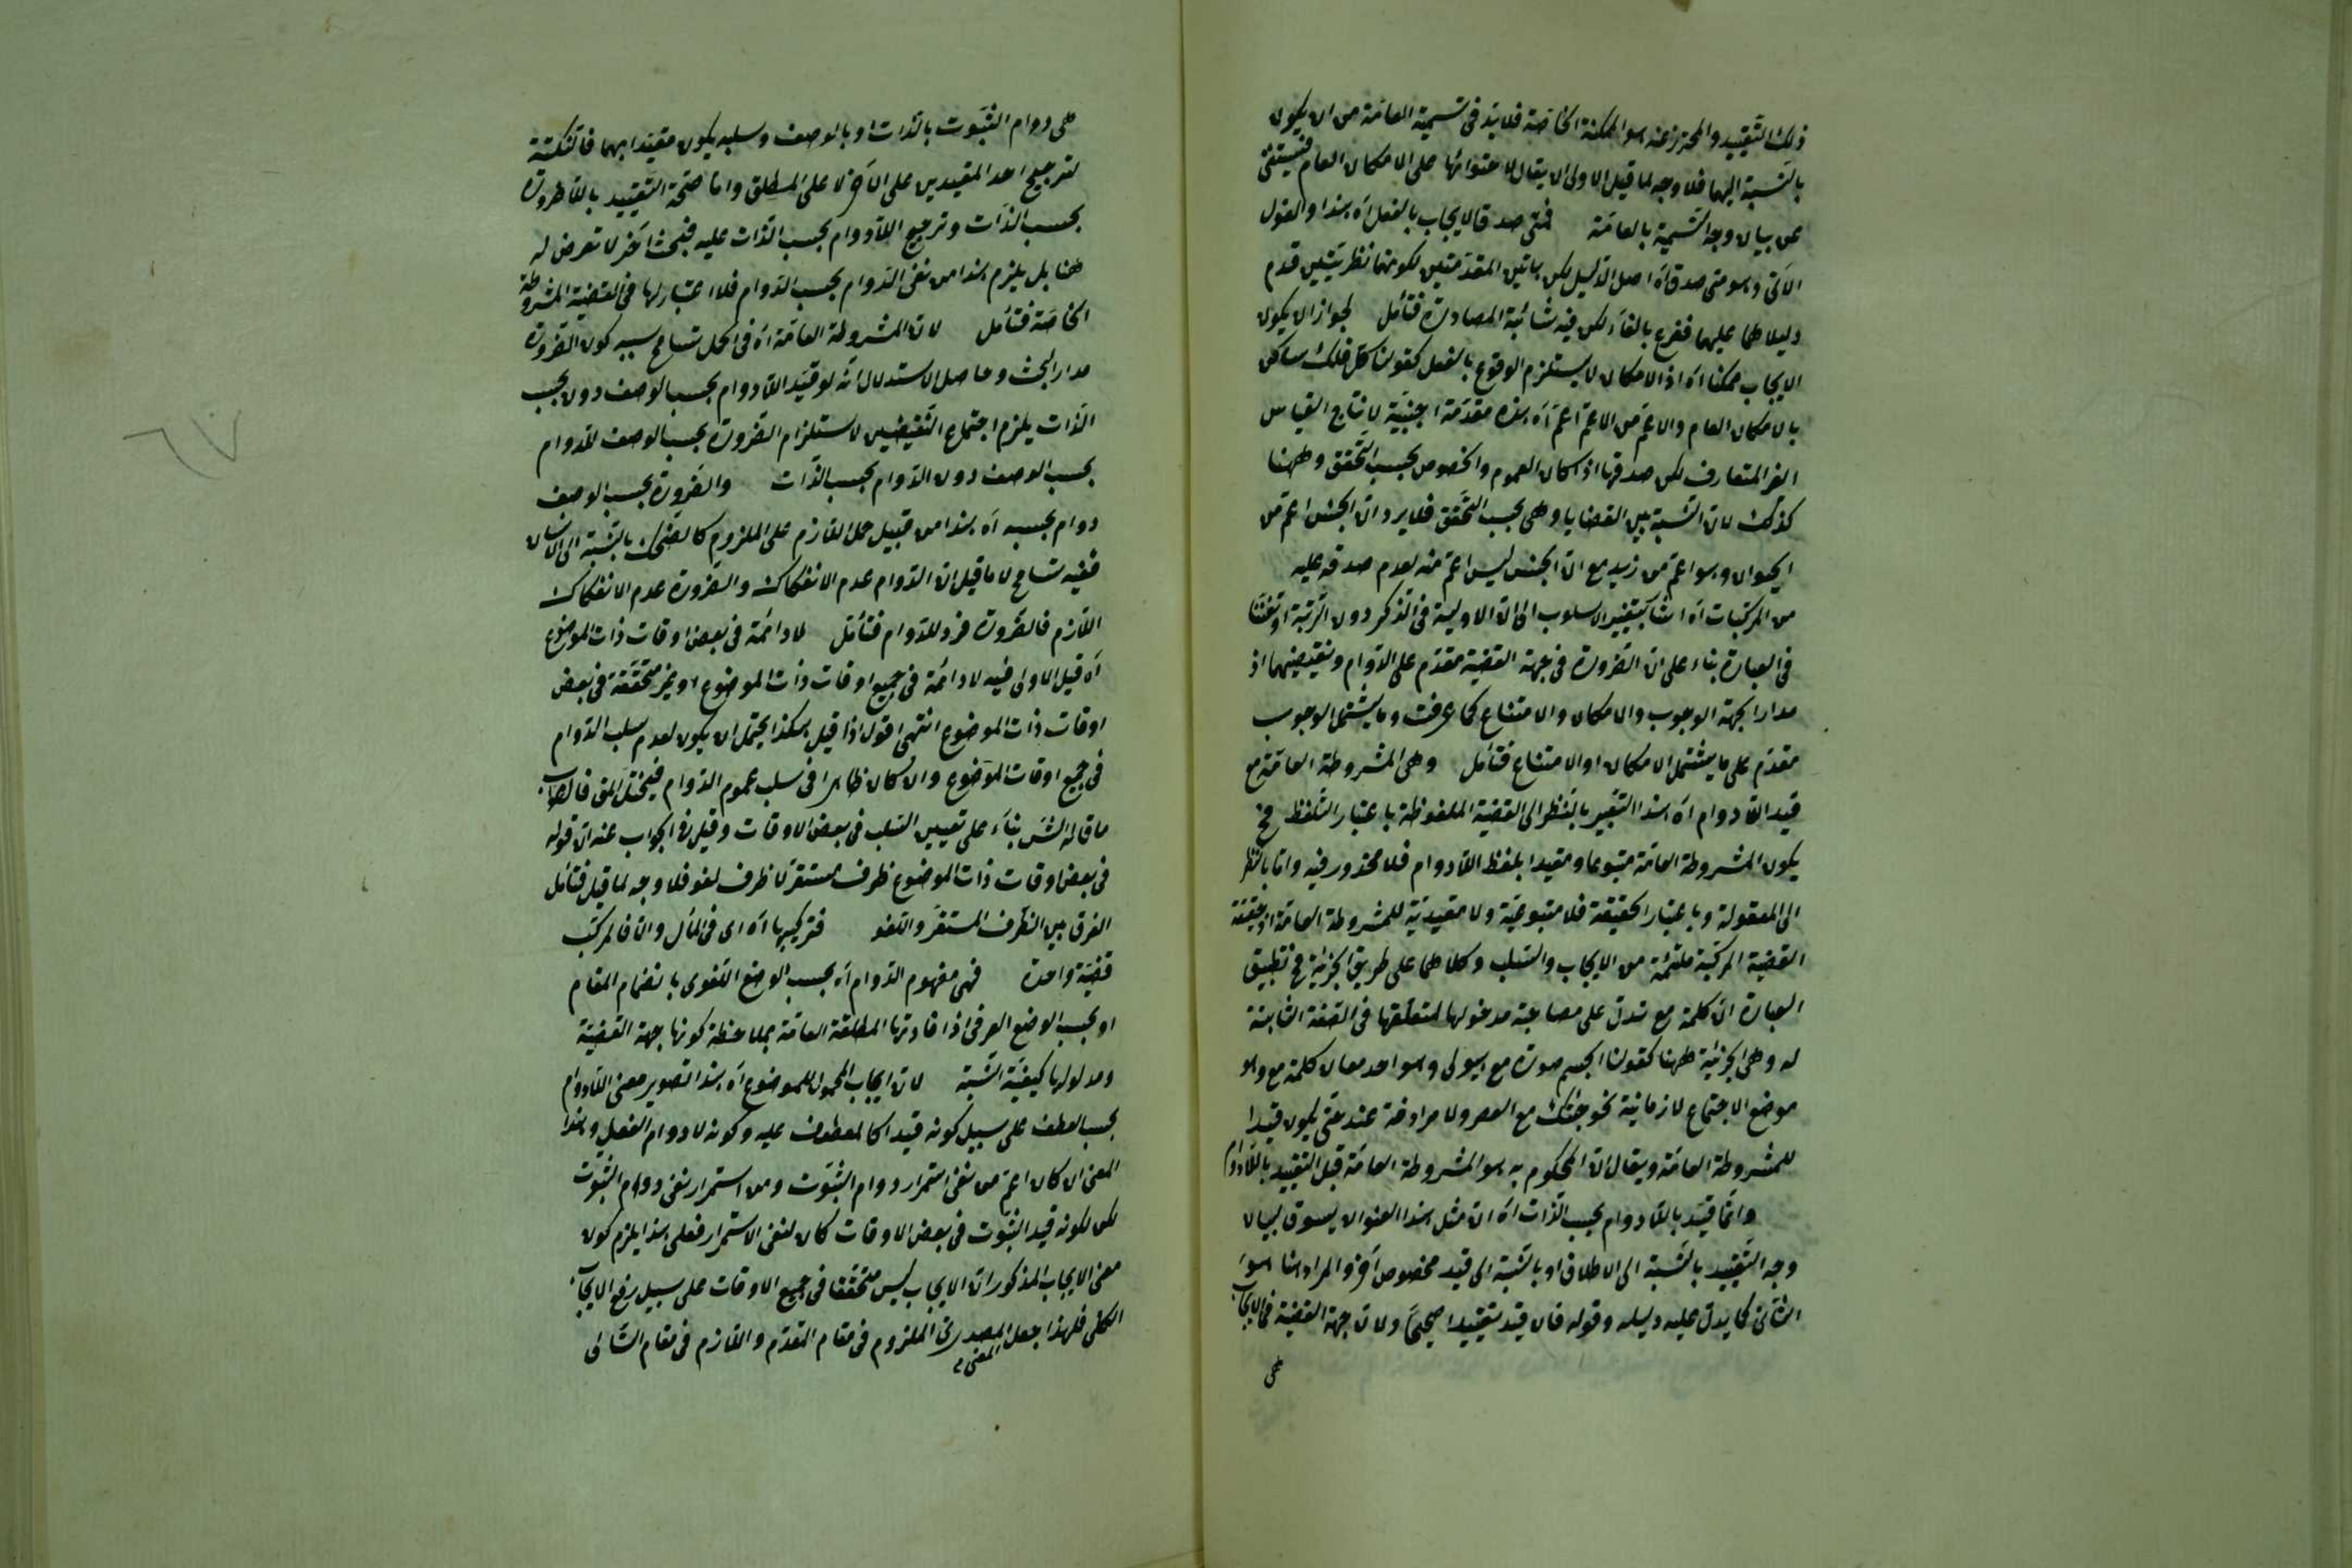 ذلك التقييد والمحترز عنه هو الممكنة الخاصة فلا بد فى تسمية العامة من ان يكون
بالنسبة اليها فلا وجه لما قيل الاولى ان يقال لاحتوائها على الامكان العام فيستغنى
عن بيان وجه التسمية بالعامة فمتى صدق الايجاب بالفعل اه هذا والقول
الآتى وهو متى صدق اه اصل الدليل لكن هاتين المقدمتين لكونهما نظريتين قدم
دليلاهما عليهما ففرع بالفاء لكن فيه شائبة المصادرة فتأمل لجواز ان يكون
الايجاب ممكنا اه اذ الامكان لا يستلزم الوقوع بالفعل كقولنا كل فلك ساكن
بالامكان العام والاعم من الاعم اعم اه هذه مقدمة اجنبية لانتاج القياس
الغير المتعارف لكن صدقها اذا كان العموم والخصوص بحسب التحقق وههنا
كذلك لان النسبة بين القضايا وهى بحسب التحقق فلا يرد ان الجنس اعم من
الحيوان وهو اعم من زيد مع ان الجنس ليس اعم منه لعدم صدقه عليه
من المركبات اه اشار بتغيير الاسلوب الى ان الاولية فى الذكر دون الرتبة او تفننا
فى العبارة بناء على ان الضرورة فى جهة القضية مقدم على الدوام ونقيضيهما اذ
مدار الجهة الوجوب والامكان والامتناع كما عرفت وما يشتمل الوجوب
مقدم على ما يشتمل الامكان او الامتناع فتأمل وهى المشروطة العامة مع
قيد اللادوام اه هذا التعبير بالنظر الى القضية الملفوظة باعتبار التلفظ فح
يكون المشروطة العامة متبوعا ومقيدا بلفظ اللادوام فلا محذور فيه واما بالنظر
الى المعقولة وباعتبار الحقيقة فلا متبوعية ولا مقيدية للمشروطة العامة اذ حقيقة
القضية المركبة ملتئمة من الايجاب والسلب وكلاهما على طريق الجزئية فح تطبيق
العبارة ان كلمة مع تدل على مصاحبة مدخولها لمتعلقها فى الصفة الثابتة
له وهى الجزئية ههنا كقولنا الجسم صورة مع هيولى وهو احد معان كلمة مع وهو
موضع الاجتماع لا زمانية نحو جئتك مع العصر ولا مرادفة عند حتى يكون قيدا
للمشروطة العامة ويقال ان المحكوم به هو المشروطة العامة قبل التقييد باللادوام
وانما قيد باللادوام بحسب الذات اه ان مثل هذا العنوان يسوق لبيان
وجه التقييد بالنسبة الى الاطلاق او بالنسبة الى قيد مخصوص آخر والمراد هنا هو
الثانى كما يدل عليه دليله وقوله فان قيد تقييدا صحيحا ولان جهة القضية فى الايجاب
هى
هى دوام الثبوت بالذات او بالوصف وسلبه يكون مقيدا بهما فالنكتة
لترجيح احد المقيدين على الآخر لا على المطلق واما صحة التقييد باللاضرورة
بحسب الذات وترجيح اللادوام بحسب الذات عليه فبحث آخر لا تعرض له
هنا بل يلزم هذا من نفى الدوام بحسب الدوام فلا اعتبار لها فى القضية المشروطة
الخاصة فتأمل لان المشروطة العامة اه فى الحل تسامح سببه كون الضرورة
مدار البحث وحاصل الاستدلال انه لو قيد اللادوام بحسب الوصف دون بحسب
الذات يلزم اجتماع النقيضين لاستلزام الضرورة بحسب الوصف للدوام
بحسب الوصف دون الدوام بحسب الذات والضرورة بحسب الوصف
دوام بحسبه اه هذا من قبيل حمل اللازم على الملزوم كالضحك بالنسبة الى الانسان
ففيه تسامح لا ما قيل ان الدوام عدم الانفكاك والضرورة عدم الانفكاك
اللازم فالضرورة فرد للدوام فتأمل لا دائمة فى بعض اوقات ذات الموضوع
اه قيل الاولى فيه لا دائمة فى جميع اوقات ذات الموضوع او غير متحققة فى بعض
اوقات ذات الموضوع انتهى اقول اذا قيل هكذا يحتمل ان يكون لعدم سلب الدوام
فى جميع اوقات الموضوع وان كان ظاهرا فى سلب عموم الدوام فيختل المعنى فالصواب
ما قاله الش بناء على تعيين السلب فى بعض الاوقات وقيل فى الجواب عنه ان قوله
فى بعض اوقات ذات الموضوع ظرف مستقر لا ظرف لغو فلا وجه لما قيل فتأمل
الفرق بين الظرف المستقر واللغو فتركيبها اه اى فى المآل والا فالمركب
قضية واحدة فهى مفهوم الدوام اه بحسب الوضع اللغوى بانضمام المقام
او بحسب الوضع العرفى اذا فادتها المطلقة العامة بملاحظة كونها جهة القضية
ومدلولها كيفية النسبة لان ايجاب المحمول للموضوع اه هذا تصوير معنى اللادوام
بحسب العطف على سبيل كونه قيدا كالمعطوف عليه وكونه لا دوام الفعل وهذا
المعنى ان كان اعم من نفى استمرار دوام الثبوت ومن استمرار نفى دوام الثبوت
لكن لكونه قيد الثبوت فى بعض الاوقات كان لنفى الاستمرار فعلى هذا يلزم كون
معنى الايجاب المذكور ان الايجاب ليس متحققا فى جميع الاوقات على سبيل رفع الايجاب
الكلى فلهذا جعل المصدرى الملزوم فى مقام المقدم واللازم فى مقام التالى
المعنى
٦٧